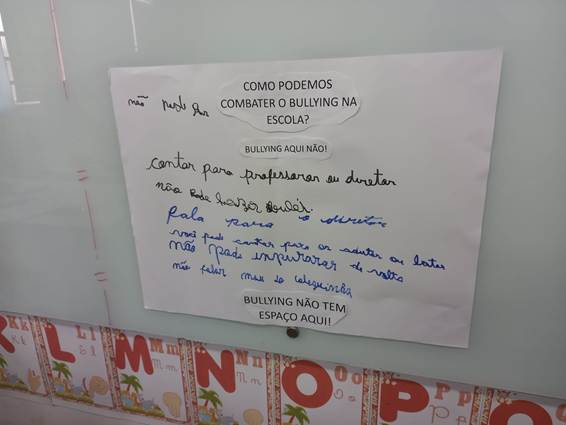 COMO PODEMOS
COMBATER O BULLYING NA
ESCOLA?
não pode
BULLYING AQUI NÃO!
contar para professoran ou diretor
não pode fazer
fala para o diretor
você pode contar para os adutos ou bater
não pode inpurarar de volta
não falar mau do coleguinha
BULLYING NÃO TEM
ESPAÇO AQUI!
Kk Ll Mm Nn Oo Pp
L M N O P Q